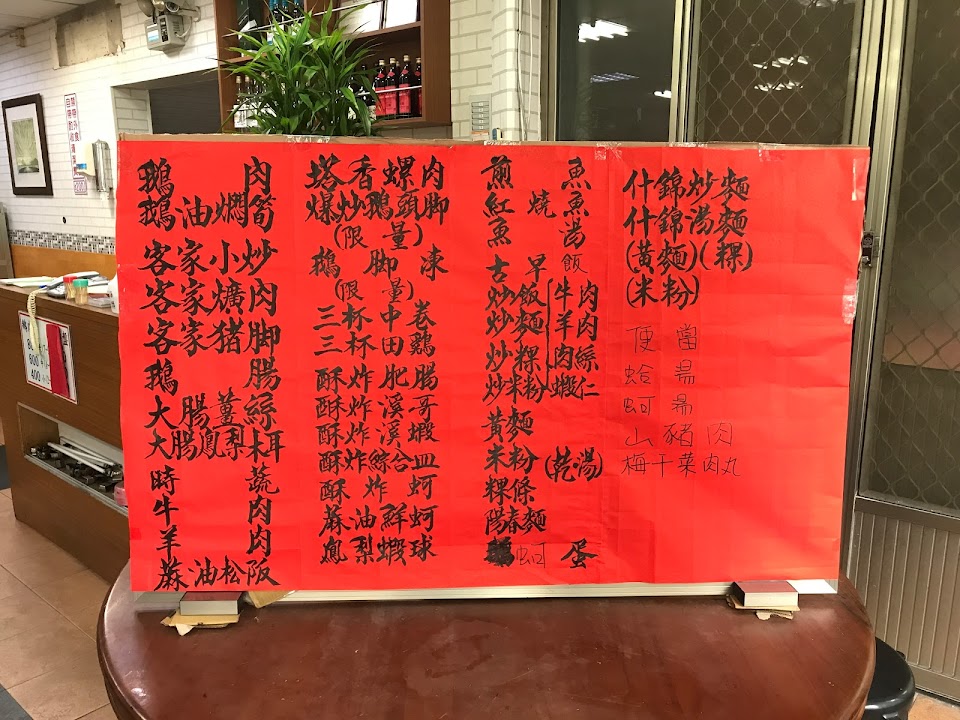 鵝肉
鵝油燜筍
客家小炒
客家爌肉
客家豬腳
鵝腸
大腸薑絲
大腸鳳梨木耳
時蔬
牛肉
羊肉
蔴油松阪
塔香螺肉
爆炒鵝頭腳
(限量)
鵝腳凍
(限量)
三杯中卷
三杯田鷄
酥炸肥腸
酥炸溪哥
酥炸溪蝦
酥炸綜合皿
酥炸蚵
蔴油鮮蚵
鳳梨蝦球
煎魚
紅燒魚
魚湯
古早飯
炒飯 牛肉
炒麵 羊肉
炒粿 肉絲
炒米粉 蝦仁
黃麵
米粉 (乾湯)
粿條
陽春麵
蚵蛋
什錦炒麵
什錦湯麵
(黃麵)(粿)
(米粉)
便當
蛤湯
蚵湯
山豬肉
梅干菜肉丸